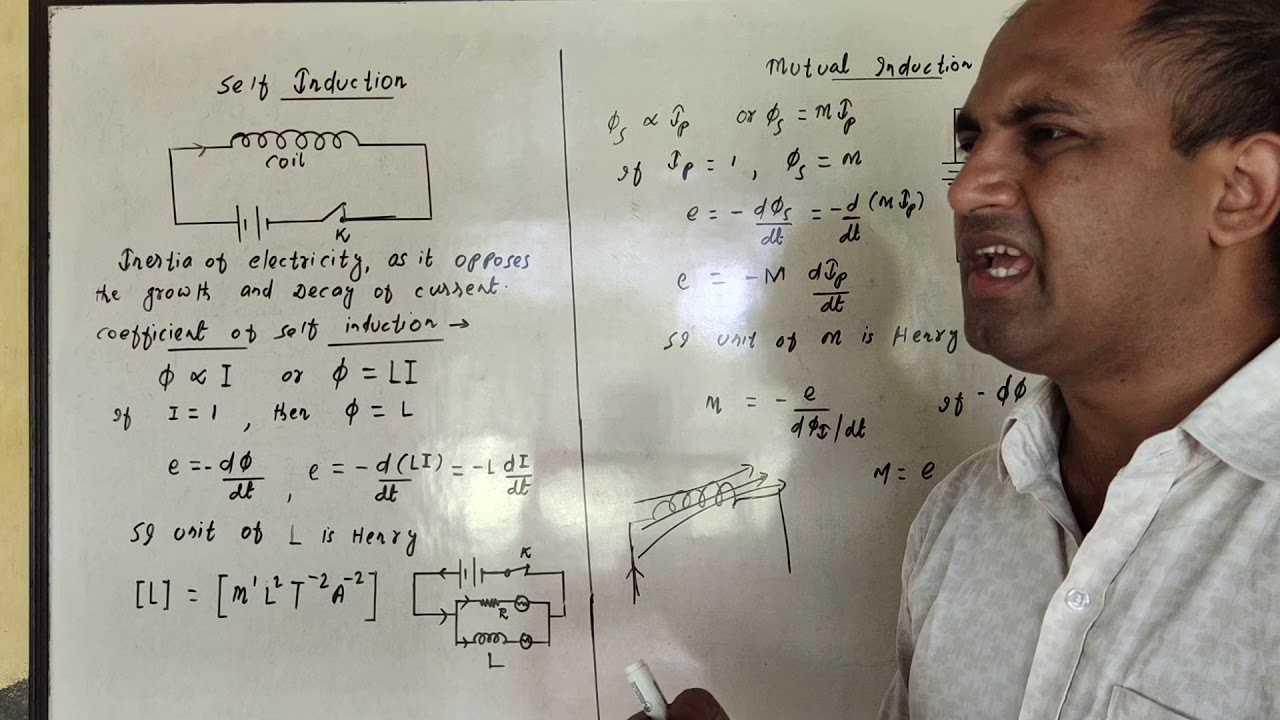 Self Induction
coil
K
Inertia of electricity, as it opposes
the growth and Decay of current.
coefficient of self induction →
ϕ ∝ I or ϕ = LI
If I = 1, then ϕ = L
e = -dϕ/dt, e = -d(LI)/dt = -L dI/dt
SI unit of L is Henry
[L] = [M¹L²T⁻²A⁻²]
K
R
L
Mutual Induction
ϕs ∝ Ip or ϕs = MIp
If Ip = 1, ϕs = M
e = -dϕs/dt = -d/dt (MIp)
e = -M dIp/dt
SI unit of M is Henry
M = -e/dϕI/dt If - dϕ
M = e